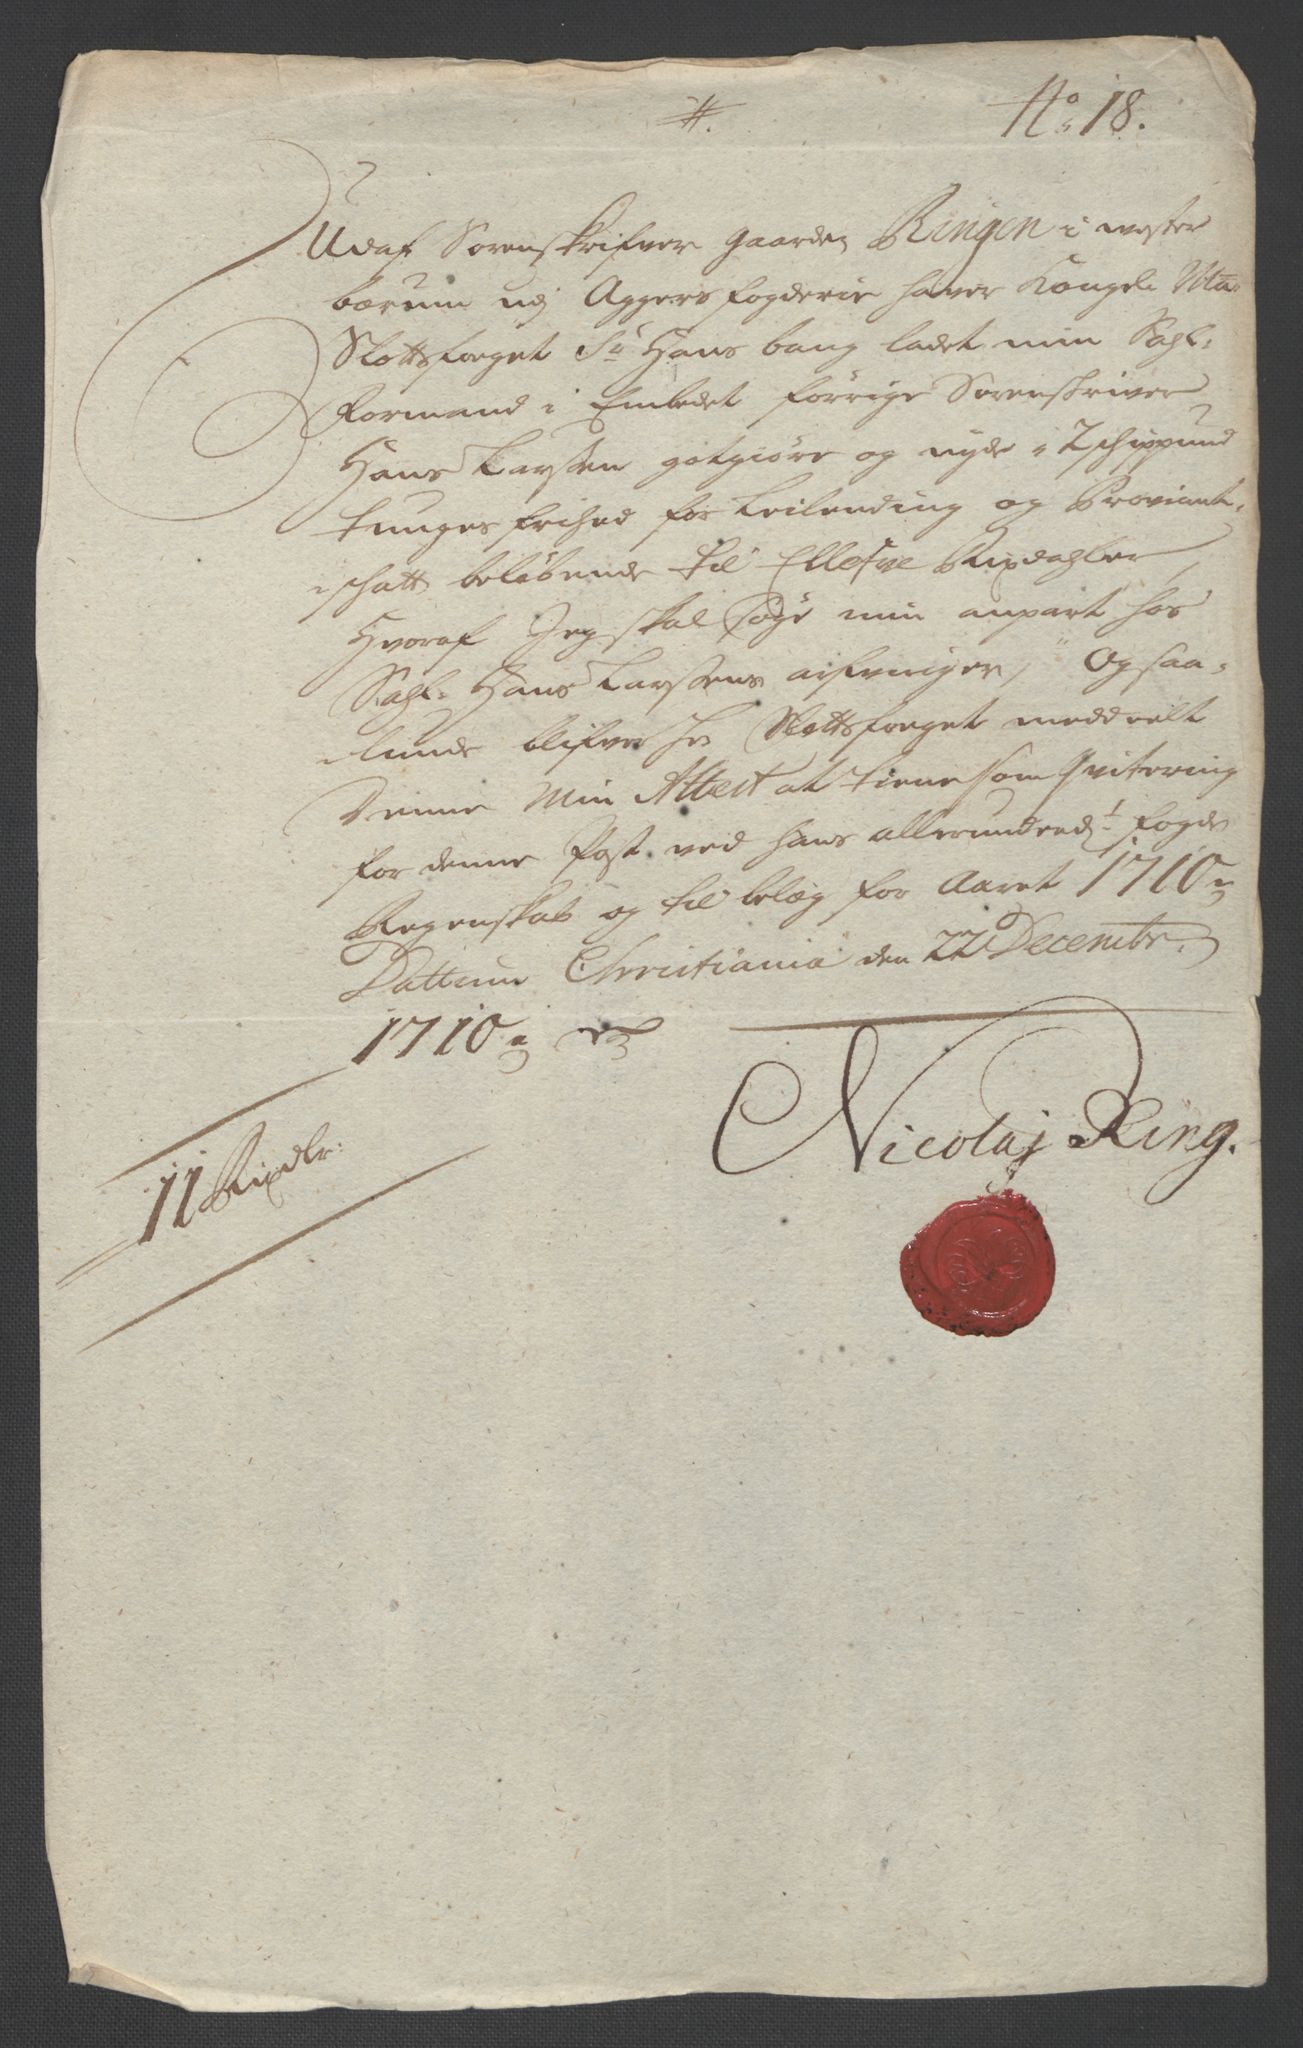 No 18.
Udaf Sorenskrifver gaarden Ringen i wester
bærum udj Aggers fogderie haver Kongel: Ma:
Slotsfoeget Sr Hans bang ladet min Sahl:
Formand i Embedet forrige Sorenskriver
Hans Larsen gotgiøre og nyde 2 schippund
tunges frihed for Leilending og Proviant-
schatt beløbende til Ellefve Rixdahler
Hvoraf Jeg skal søge min anpart hos
Sahl: Hans Larsens arfvinger, Og saa-
lunde blifver hr Slottsfoeget meddeelt
Denne Min Attest at tiene som Qvitering
for denne Post ved hans allerunderd: fogde
Regenskab og til belæg for Aaret 1710
Dattum Christiania den 22 Decembr:
1710
11 Rixdlr:
Nicolaj Ring.